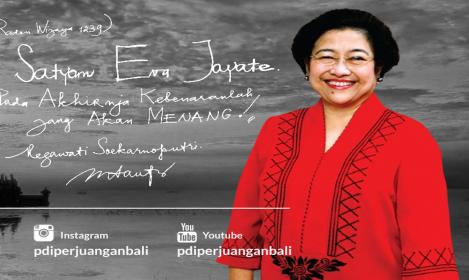 (Raden Wijaya 1239)
Satyam Eva Jayate.
Pada Akhirnja Kebenaranlah,
jang Akan MENANG!!
Megawati Soekarnoputri.
Instagram
pdiperjuanganbali
You
Tube
Youtube
pdiperjuanganbali